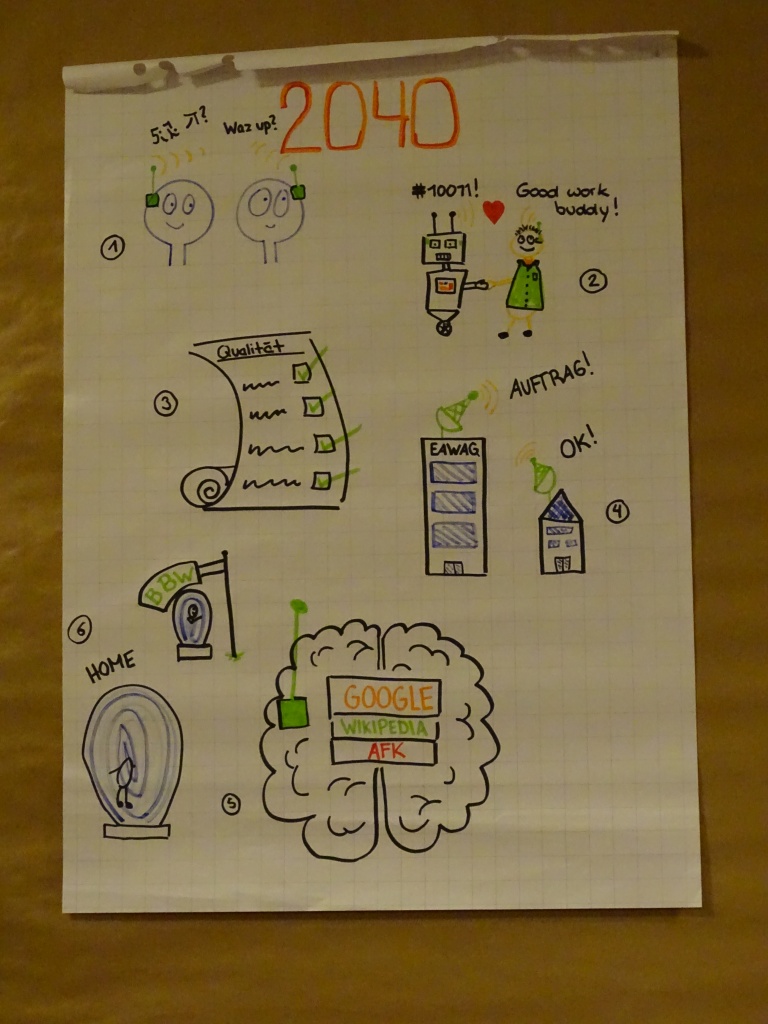 2040
Waz up?
①
#10011!
Good work
buddy!
②
③
Qualität
AUFTRAG!
EAWAG
OK!
④
BBW
⑥
HOME
GOOGLE
WIKIPEDIA
AFK
⑤